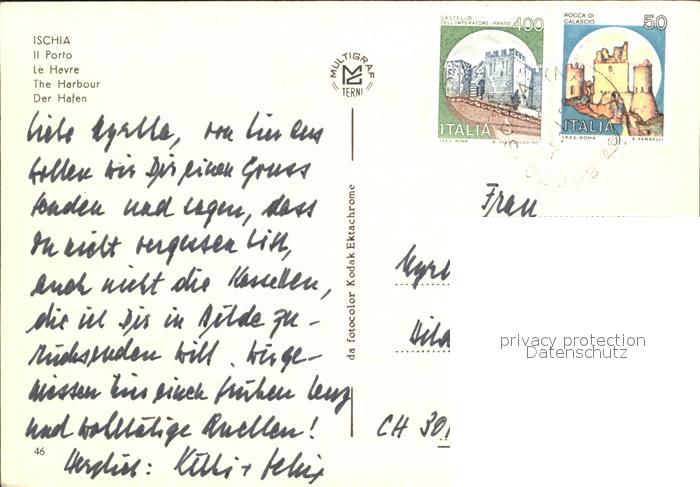 ISCHIA
Il Porto
Le Havre
The Harbour
Der Hafen
MULTIGRAF
TERNI
CASTELLO
DELL'IMPERATORE - PRATO
400
ITALIA
I.P.Z.S. - ROMA
ROCCA DI
CALASCIO
50
ITALIA
I.P.Z.S. - ROMA E. VANGELLI
Liebe von hier aus
wollen wir Dir einen Gruss
senden und sagen, dass
Du nicht vergessen bist,
auch nicht die Kassetten,
die ich Dir in Bälde zu-
rücksenden will. Wir ge-
niessen hier einen frühen Lenz
und wohltätige Quellen!
Herzlich:
46
da fotocolor Kodak Ektachrome
Frau
CH 30
privacy protection
Datenschutz